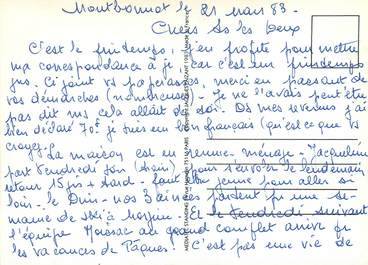 Montbonnot le 21 mars 83.
Chers As les Deux
C'est le printemps, j'en profite pour mettre
ma correspondance à jour, car c'est un printemps
gris. Ci joint vs paperasses, merci en passant de
vos démarches (nombreuses). Je ne l'avais peut être
pas dit ms cela allait de soi. Ds mes revenus j'ai
bien déclaré 70% je suis un bon français (qu'est ce que vs
croyez?)
La maison est en remue-ménage. Jacqueline
part Vendredi pour s'envoler le lendemain
retour 15 jrs + tard. Faut être jeune pour aller si
loin. le Dim. nos 3 aînées partent pr une se-
maine de ski à Et le Vendredi suivant
l'équipe au grand complet arrive pr
les vacances de Pâques. C'est pas une vie de